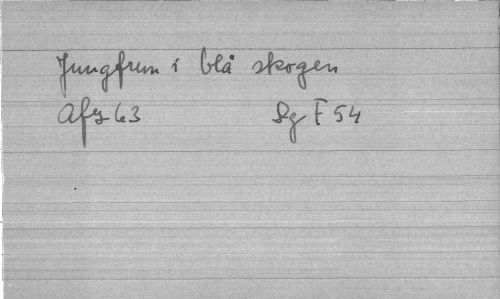 Jungfrun i blå skogen
Afz 63 Sg F 54